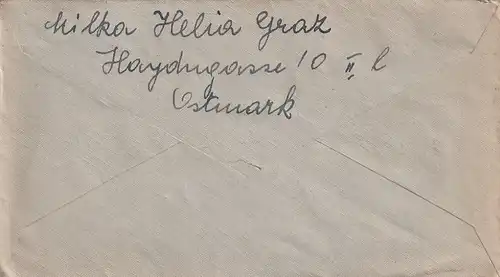 Milka Helia Graz
Haydngasse 10 II, l
Ostmark